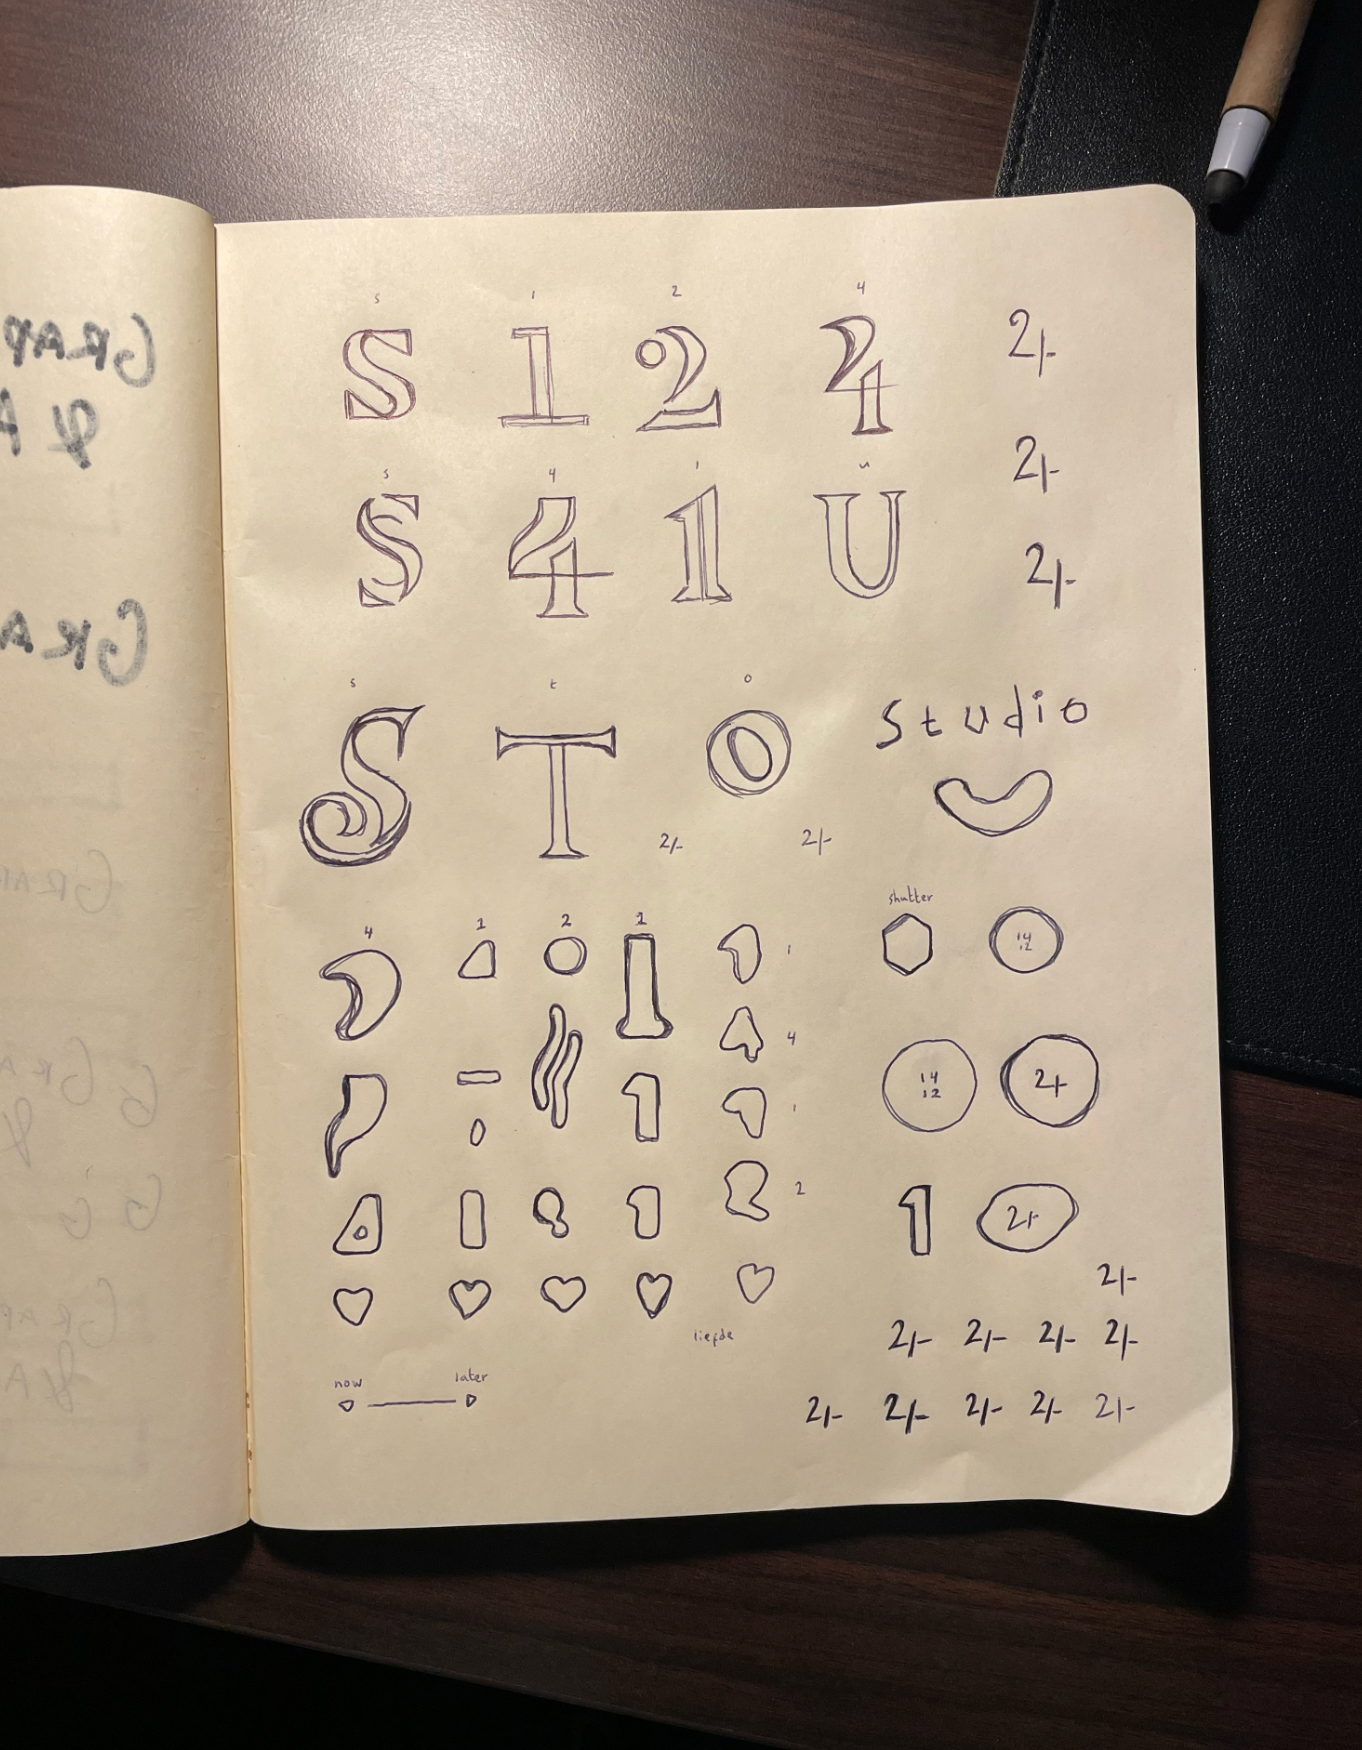 s 1 2 4
S 1 2 4 2/-
2/-
s 4 1 u
S 4 1 U 2/-
s t o
S T O
studio
2/- 2/-
shutter
4 1 2 1
1
14
12
4
14
12
2+
1
1
1 1 2
1 2+
2/-
2/- 2/- 2/- 2/-
liefde
now later
2/- 2/- 2/- 2/- 2/-